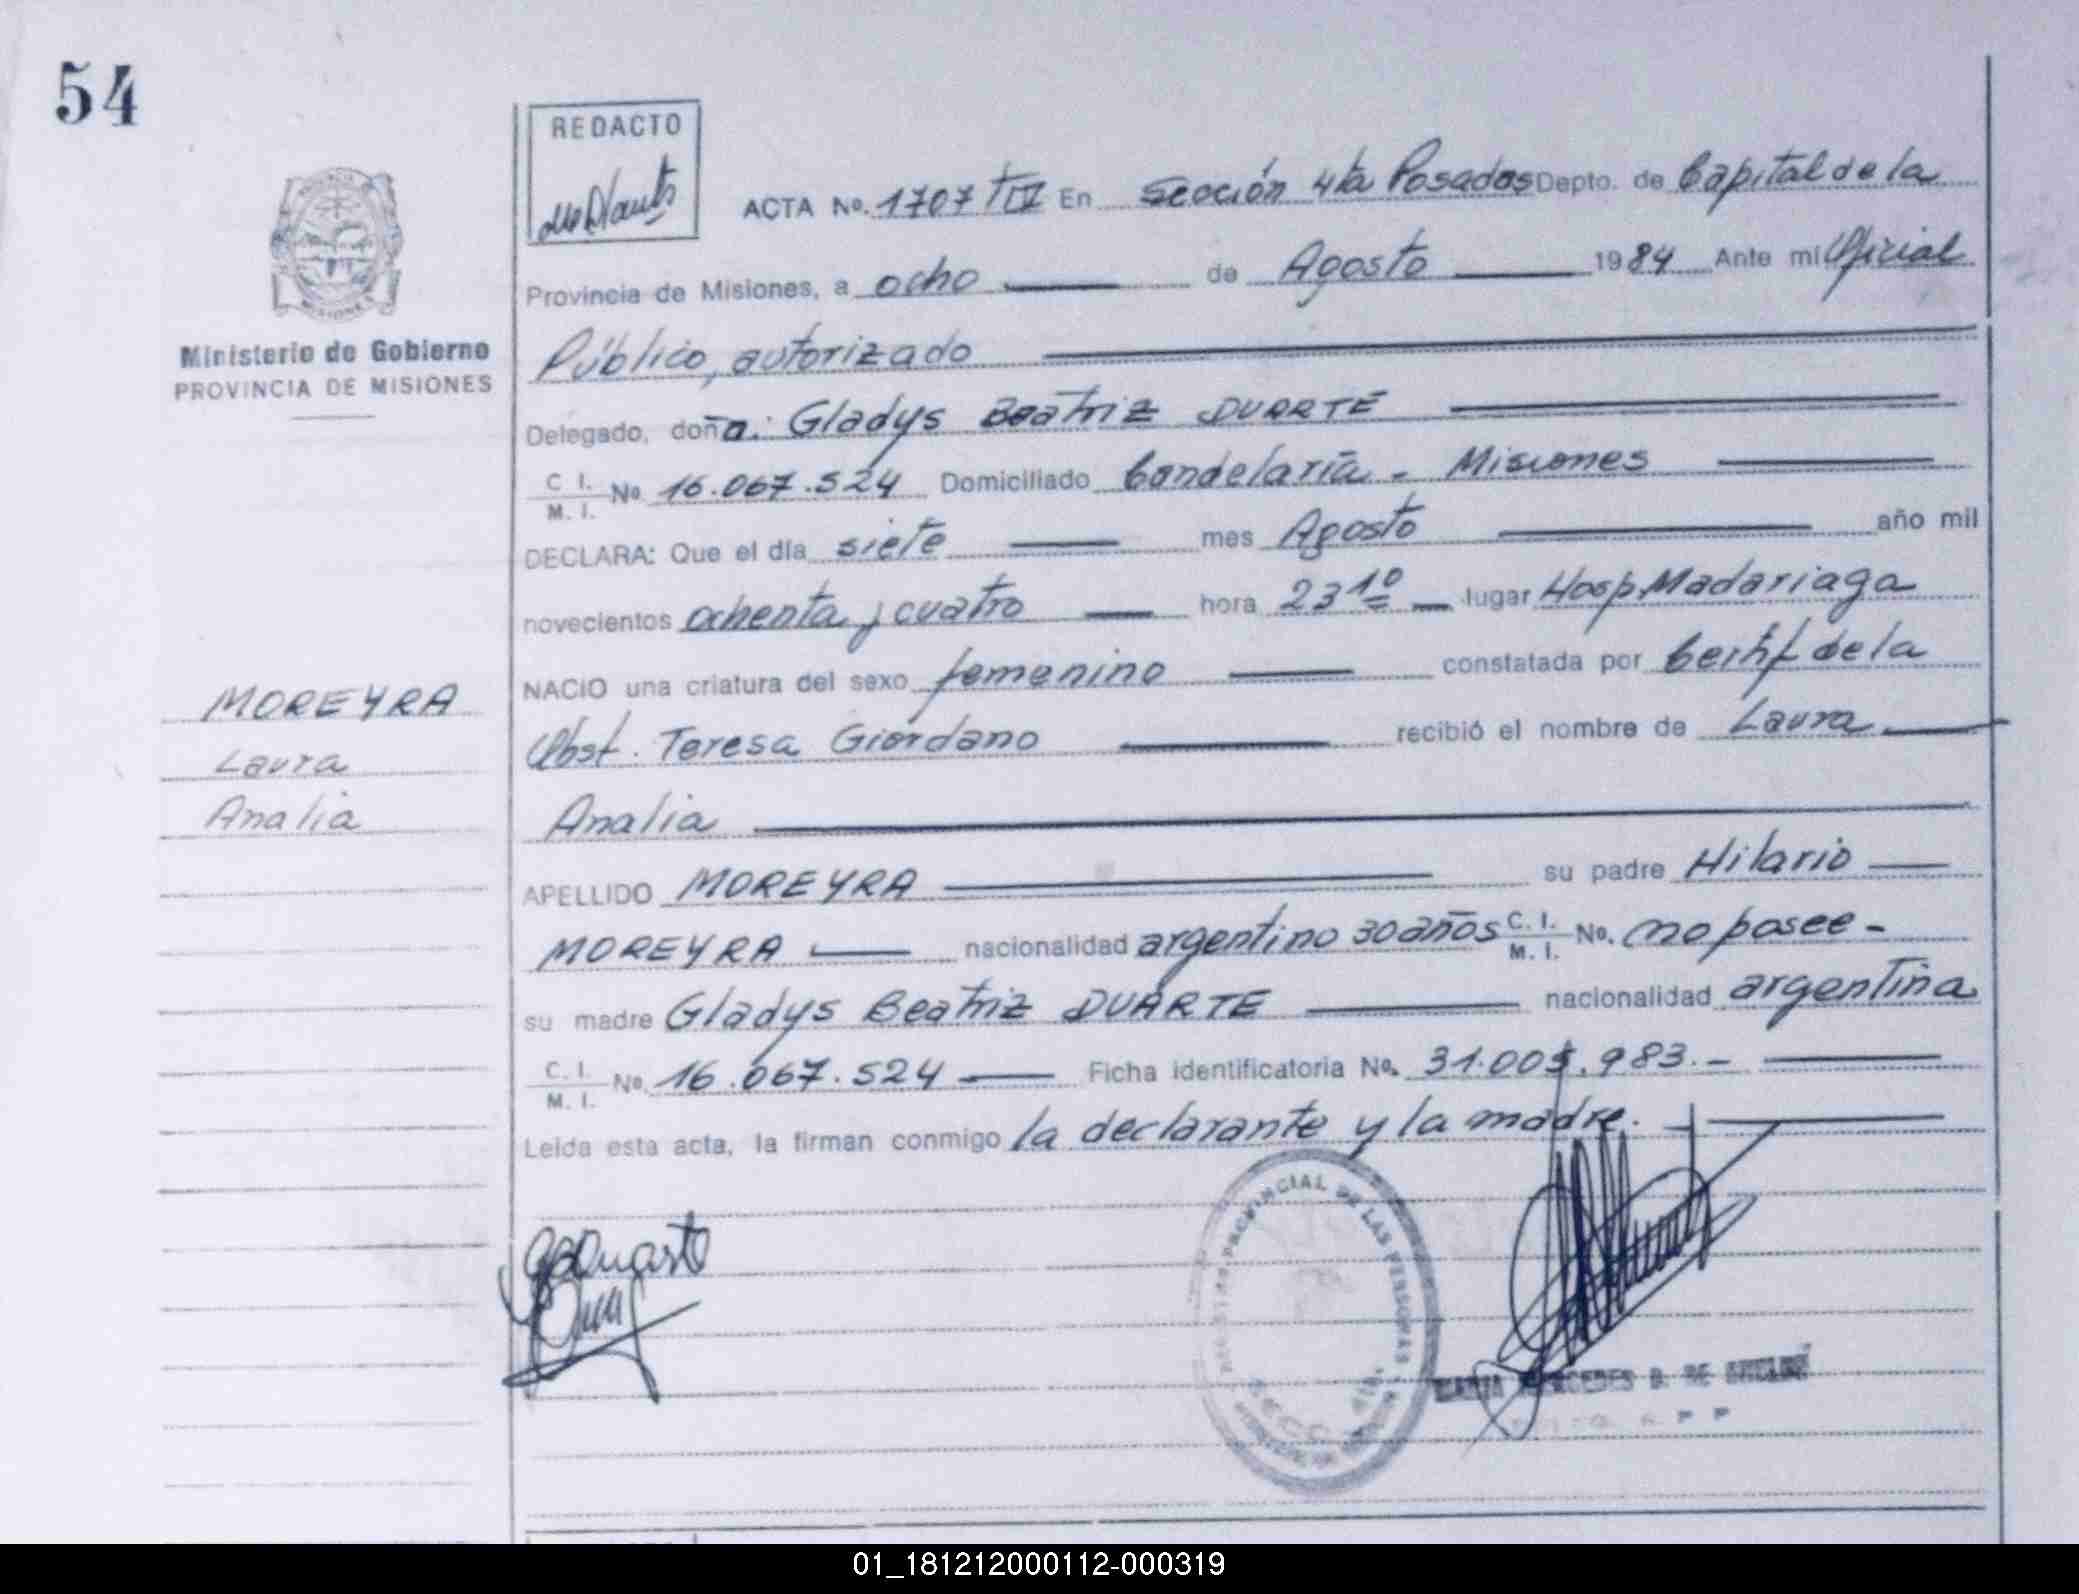 54
REDACTO
ACTA No. 1707/IV En Sección 4ta Posadas Depto. de Capital de la
Provincia de Misiones, a ocho de Agosto 1984 Ante mi Oficial
Público, autorizado
Ministerio de Gobierno
PROVINCIA DE MISIONES
Delegado, doña: Gladys Beatriz DUARTE
C. I. M. I. No 16.067.524 Domiciliado Candelaria - Misiones
DECLARA: Que el día siete mes Agosto año mil
novecientos ochenta y cuatro hora 23 10 lugar Hosp. Madariaga
NACIO una criatura del sexo femenino constatada por Certif de la
Obst. Teresa Giordano recibió el nombre de Laura
Analia
MOREYRA
Laura
Analia
APELLIDO MOREYRA su padre Hilario
MOREYRA nacionalidad argentino 30 años C. I. M. I. No. no posee -
su madre Gladys Beatriz DUARTE nacionalidad argentina
C. I. M. I. No. 16.067.524 Ficha identificatoria No. 31.005.983.-
Leída esta acta, la firman conmigo la declarante y la madre.
GBDuarte
PROVINCIAL DE LAS PERSONAS
MERCEDES D. DE
01_181212000112-000319